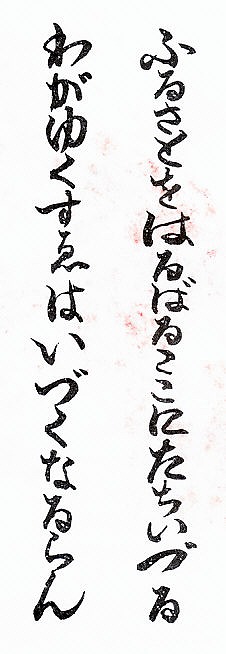 ふるさとをはるばるここにたちいづる
わがゆくすゑはいづくなるらん